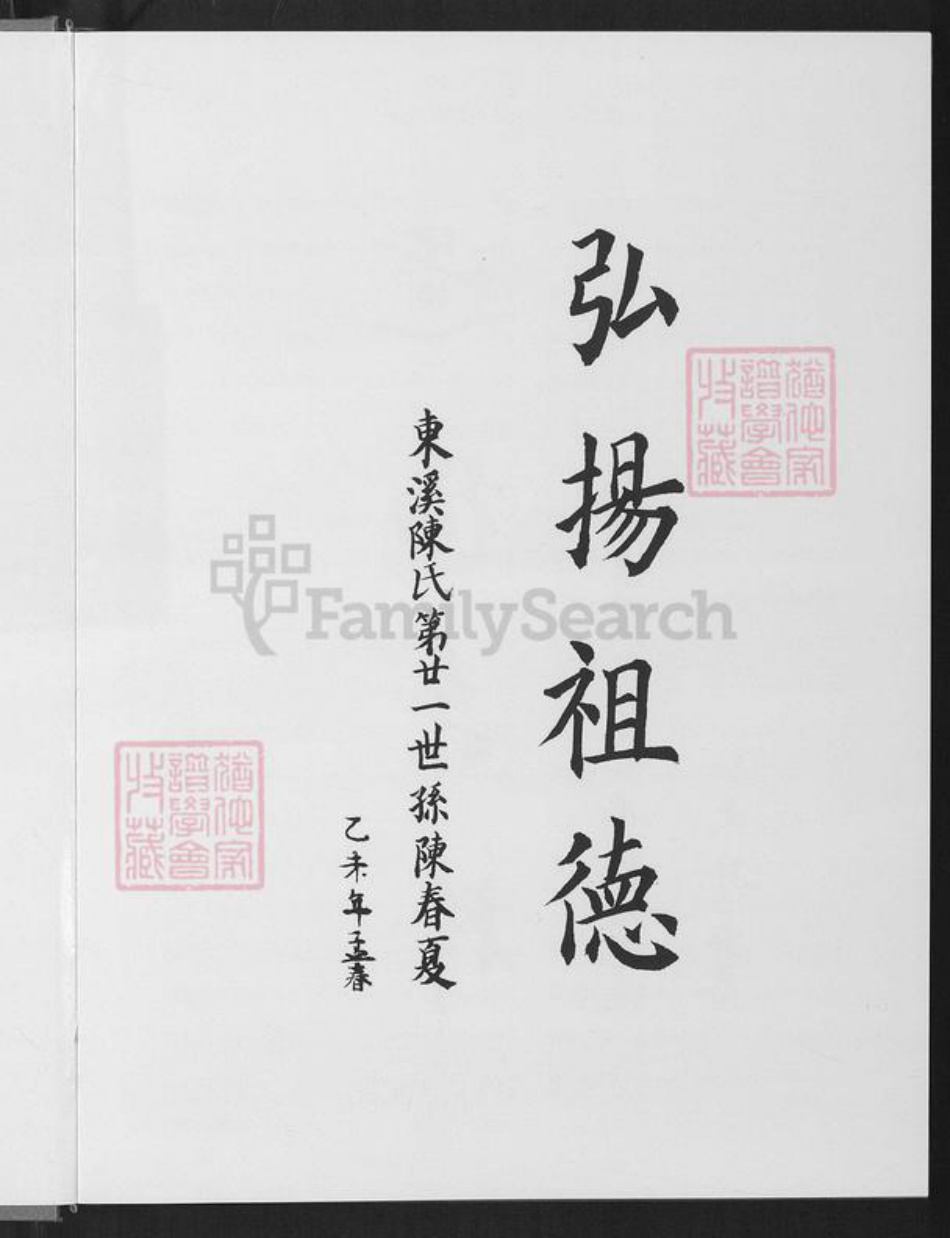 弘揚祖德
東溪陳氏第廿一世孫陳春夏
乙未年孟春
猶他家
譜學會
收藏
猶他家
譜學會
收藏
FamilySearch